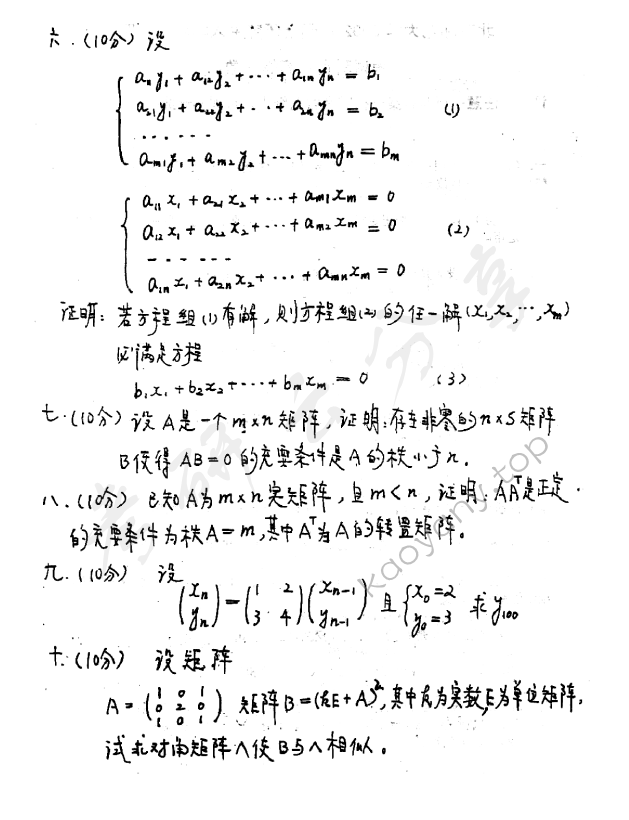 六.(10分) 设
a₁₁y₁ + a₁₂y₂ + ··· + a₁ₙyₙ = b₁
a₂₁y₁ + a₂₂y₂ + ··· + a₂ₙyₙ = b₂ (1)
······
aₘ₁y₁ + aₘ₂y₂ + ··· + aₘₙyₙ = bₘ
a₁₁x₁ + a₂₁x₂ + ··· + aₘ₁xₘ = 0
a₁₂x₁ + a₂₂x₂ + ··· + aₘ₂xₘ = 0 (2)
······
a₁ₙx₁ + a₂ₙx₂ + ··· + aₘₙxₘ = 0
证明: 若方程组(1)有解, 则方程组(2)的任一解(x₁,x₂,···,xₘ)
必满足方程
b₁x₁ + b₂x₂ + ··· + bₘxₘ = 0 (3)
七.(10分) 设A是一个m×n矩阵, 证明:存在非零的n×s矩阵
B使得 AB=0 的充要条件是A的秩小于n.
八.(10分) 已知A为m×n实矩阵, 且m<n, 证明: AAᵀ是正定
的充要条件为秩A=m, 其中Aᵀ为A的转置矩阵。
九.(10分) 设
(xₙ yₙ) = (1 2 3 4)(xₙ₋₁ yₙ₋₁) 且 {x₀=2 y₀=3 求y₁₀₀
十.(10分) 设矩阵
A = (1 0 1 0 2 0 1 0 1) 矩阵B=(kE+A)², 其中k为实数,E为单位矩阵,
试求对角矩阵Λ使B与Λ相似。
考研云分享
kaoyany.top